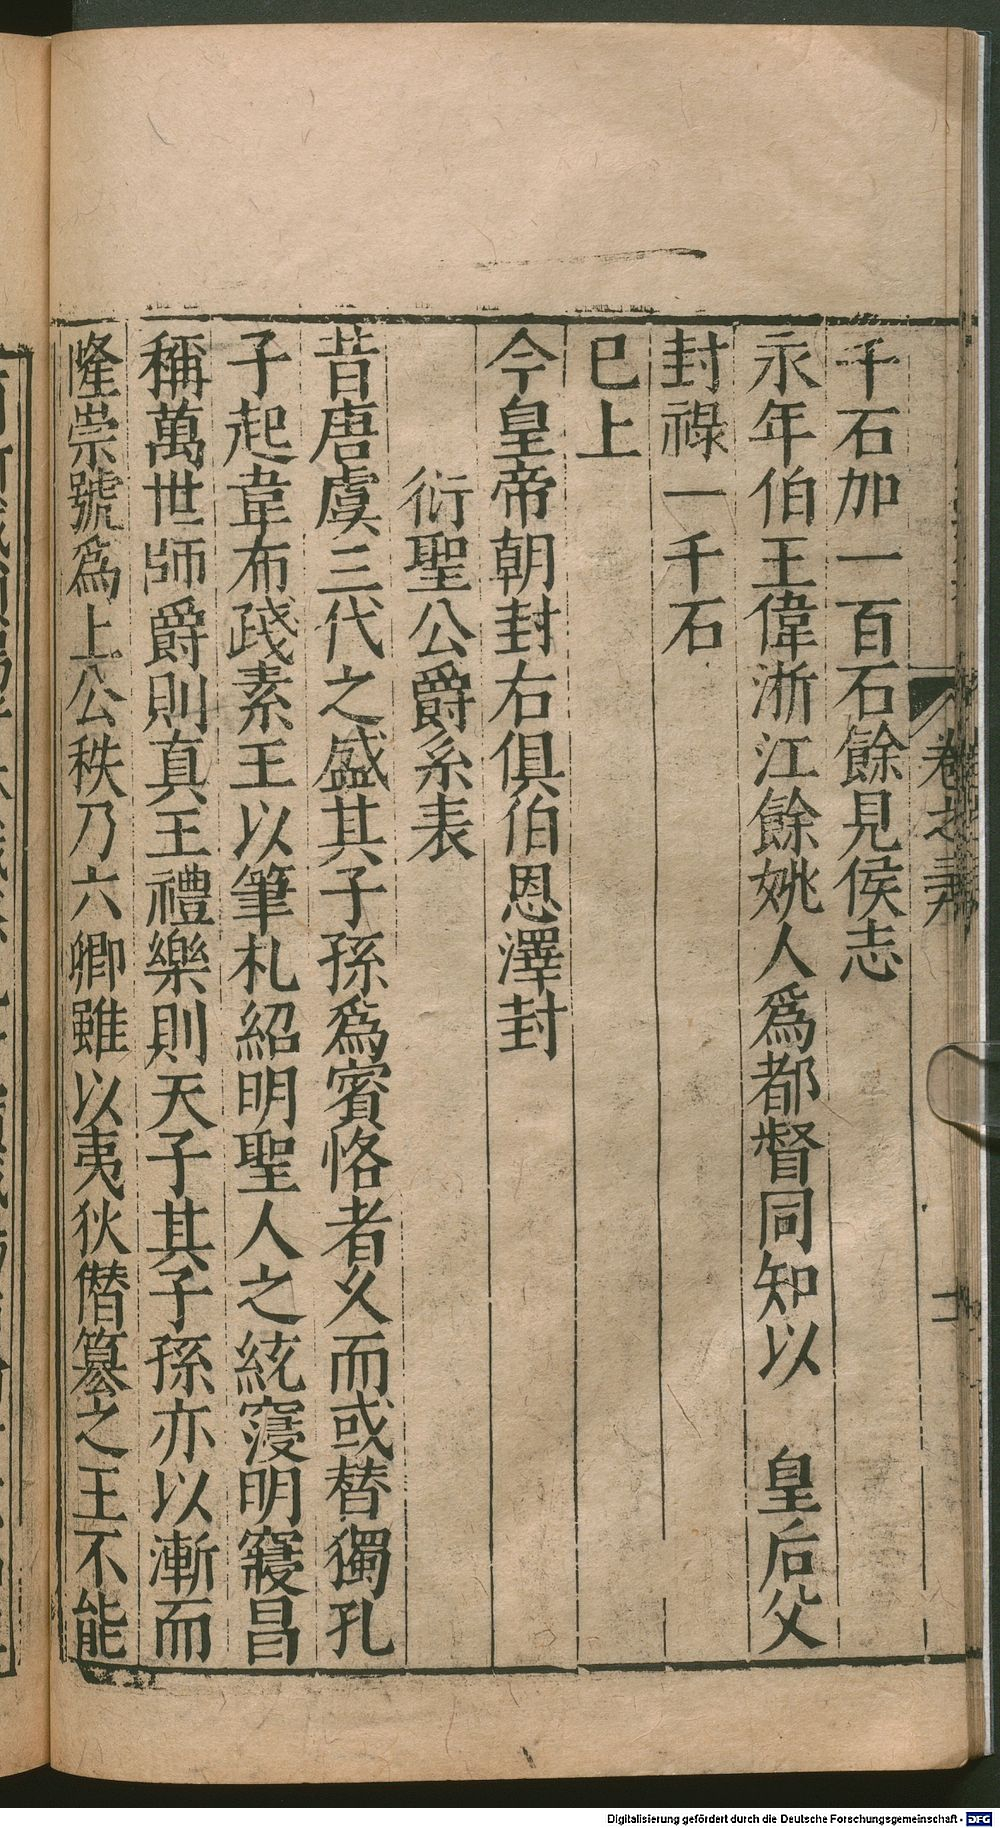 千石加一百石餘見侯志
永年伯王偉浙江餘姚人爲都督同知以　皇后父
封祿一千石
已上
今皇帝朝封右俱伯恩澤封
衍聖公爵系表
昔唐虞三代之盛其子孫爲賓恪者久而或替獨孔
子起韋布踐素王以筆札紹明聖人之統寖明寖昌
稱萬世師爵則真王禮樂則天子其子孫亦以漸而
隆崇號爲上公秩乃六卿雖以夷狄僭簒之王不能
卷之三
二
Digitalisierung gefördert durch die Deutsche Forschungsgemeinschaft - DFG